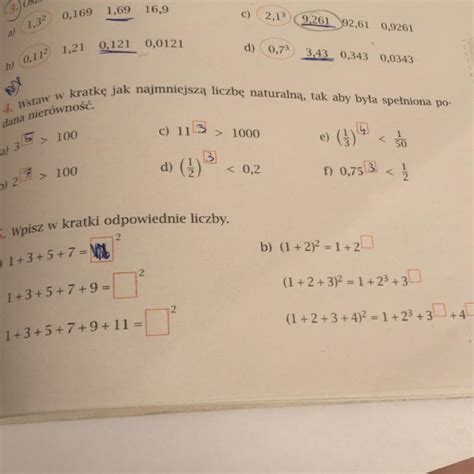 3.
a) 1,3² 0,169 1,69 16,9
c) 2,1³ 9,261 92,61 0,9261
b) 0,11² 1,21 0,121 0,0121
d) 0,7³ 3,43 0,343 0,0343
4. Wstaw w kratkę jak najmniejszą liczbę naturalną, tak aby była spełniona po-
dana nierówność.
a) 3^5 > 100
c) 11^3 > 1000
e) (1/3)^4 < 1/50
b) 2^7 > 100
d) (1/2)^3 < 0,2
f) 0,75^3 < 1/2
. Wpisz w kratki odpowiednie liczby.
) 1 + 3 + 5 + 7 = □²
b) (1 + 2)² = 1 + 2^□
1 + 3 + 5 + 7 + 9 = □²
(1 + 2 + 3)² = 1 + 2³ + 3^□
1 + 3 + 5 + 7 + 9 + 11 = □²
(1 + 2 + 3 + 4)² = 1 + 2³ + 3^□ + 4^□